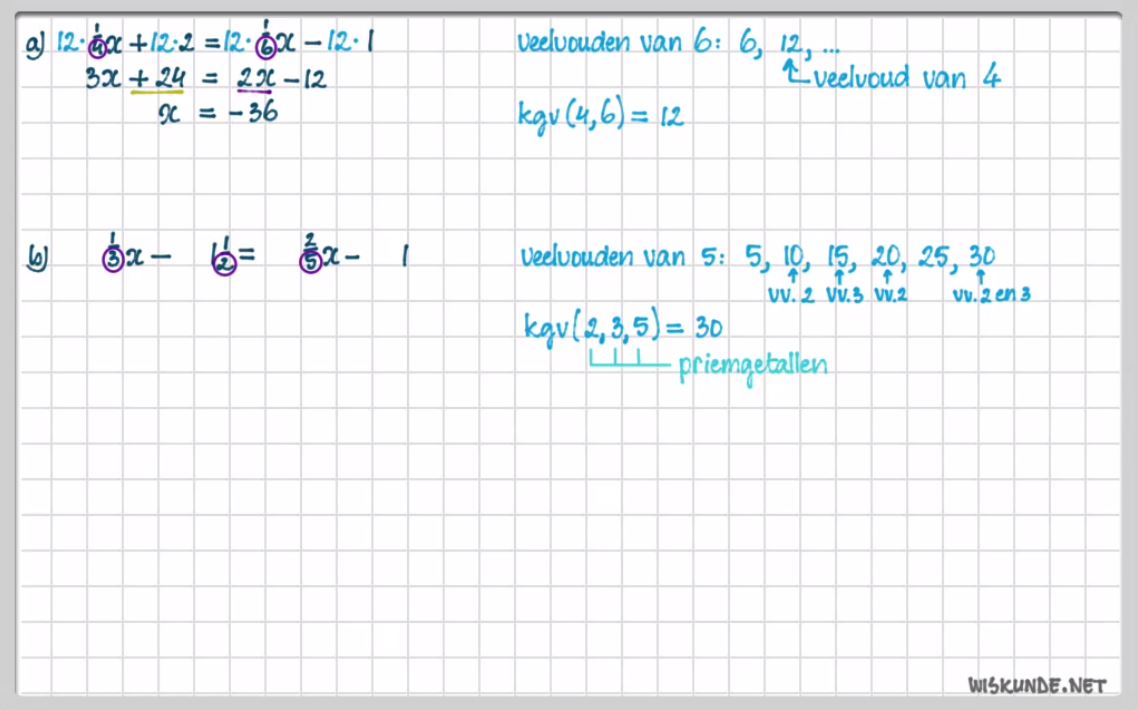 a) 12·¼x + 12·2 = 12·⅙x − 12·1
3x + 24 = 2x − 12
x = −36
veelvouden van 6: 6, 12, ...
veelvoud van 4
kgv(4,6) = 12
b) ⅓x − 1½ = ⅖x − 1
veelvouden van 5: 5, 10, 15, 20, 25, 30
vv. 2 vv. 3 vv. 2 vv. 2 en 3
kgv(2,3,5) = 30
priemgetallen
WISKUNDE.NET